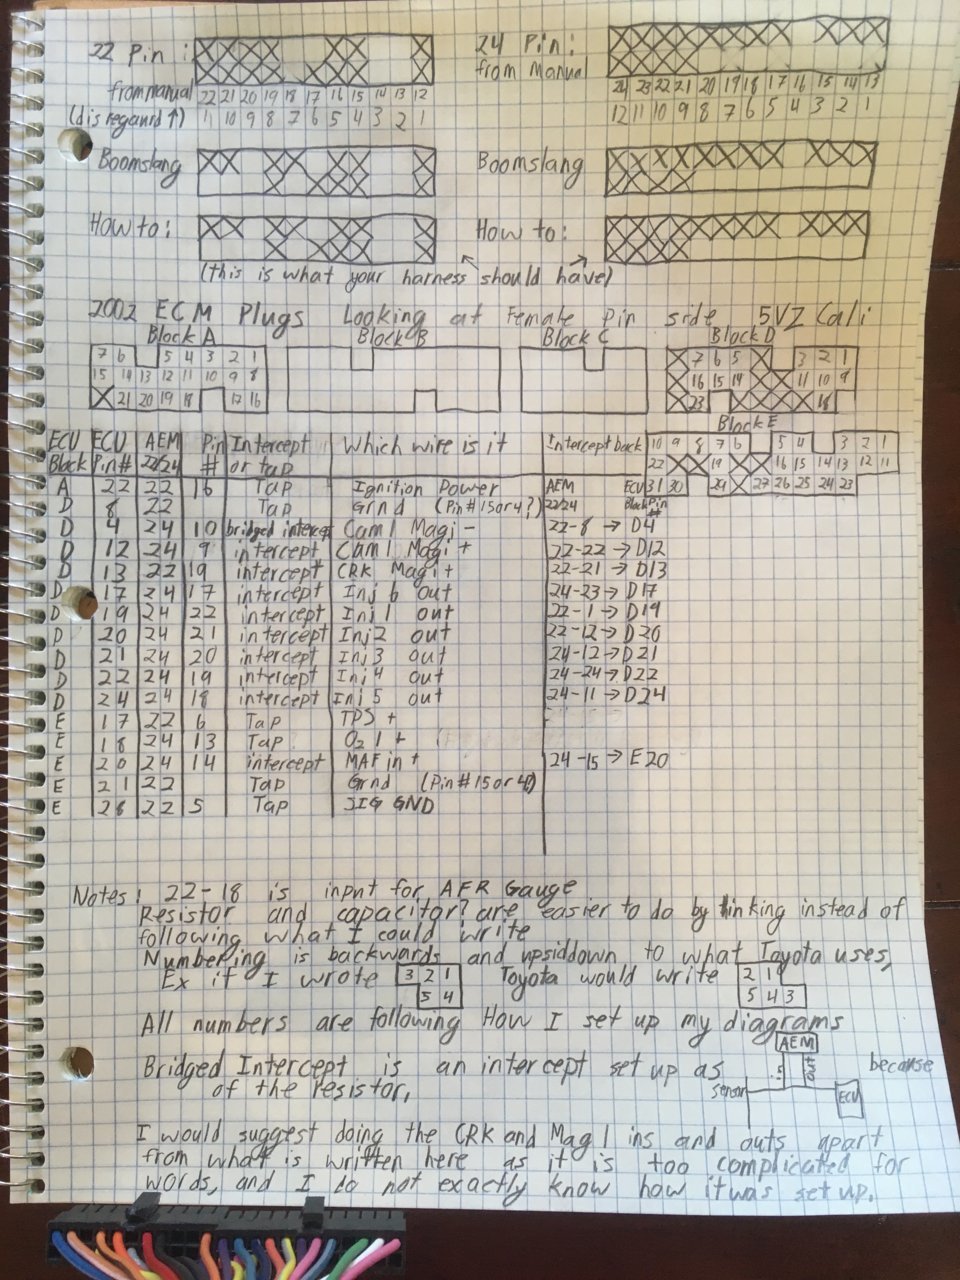 22 Pin :
24 Pin:
from Manual
from manual 22 21 20 19 18 17 16 15 14 13 12
24 23 22 21 20 19 18 17 16 15 14 13
(disregard ↑) 11 10 9 8 7 6 5 4 3 2 1
12 11 10 9 8 7 6 5 4 3 2 1
Boomslang
Boomslang
How to:
How to:
(this is what your harness should have)
2002 ECM Plugs Looking at Female Pin side 5VZ Cali
Block A Block B Block C Block D
7 6 5 4 3 2 1
15 14 13 12 11 10 9 8
21 20 19 18 17 16
7 6 5 3 2 1
16 15 14 11 10 9
23 18
Block E
10 9 8 7 6 5 4 3 2 1
22 19 16 15 14 13 12 11
31 30 29 27 26 25 24 23
ECU Block ECU Pin# AEM 22/24 Pin # Intercept or tap Which wire is it Intercept back
AEM 22/24 ECU Block Pin #
A 22 22 16 Tap Ignition Power
D 8 22 Tap Grnd (Pin# 15 or 4?)
D 4 24 10 bridged intercept Cam1 Magi - 22-8 → D4
D 12 24 9 intercept Cam1 Magi + 22-22 → D12
D 13 22 19 intercept CRK Magi + 22-21 → D13
D 17 24 17 intercept Inj 6 out 24-23 → D17
D 19 24 22 intercept Inj 1 out 22-1 → D19
D 20 24 21 intercept Inj2 out 22-12 → D20
D 21 24 20 intercept Inj3 out 24-12 → D21
D 22 24 19 intercept Inj4 out 24-24 → D22
D 24 24 18 intercept Inj 5 out 24-11 → D24
E 17 22 6 Tap TPS +
E 18 24 13 Tap O2 1 +
E 20 24 14 intercept MAF in + 24-15 → E20
E 21 22 Tap Grnd (Pin# 15 or 4)
E 28 22 5 Tap SIG GND
Notes: 22-18 is input for AFR Gauge
Resistor and capacitor? are easier to do by linking instead of
following what I could write
Numbering is backwards and upsiddown to what Toyota uses,
Ex if I wrote 3 2 1 Toyota would write 2 1
5 4 5 4 3
All numbers are following How I set up my diagrams
AEM
Bridged Intercept is an intercept set up as because
of the resistor. sensor out ECU
I would suggest doing the CRK and Mag 1 ins and outs apart
from what is written here as it is too complicated for
words, and I do not exactly know how it was set up.